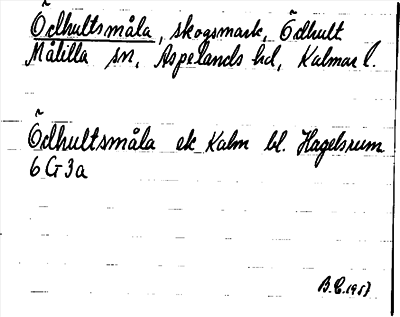 Ödhultsmåla, skogsmark, Ödhult
Målilla sn, Aspelands hd, Kalmar l.
Ödhultsmåla ek Kalm bl. Hagelsrum
6 G 3a